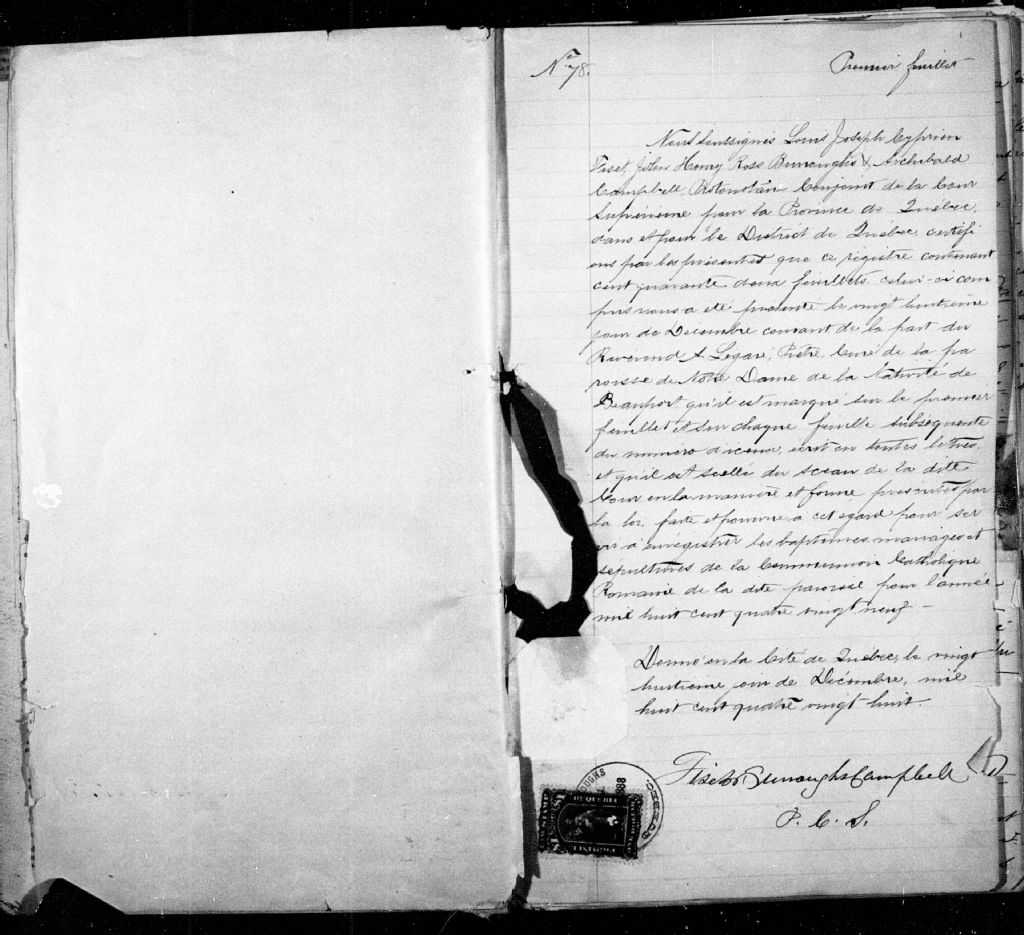 No 78.
Premier feuillet
Nous soussignés Louis Joseph Cyprien
Fiset, John Henry Ross Burroughs & Archibald
Campbell, Protonotaire Conjoint de la Cour
Supérieure pour la Province de Québec,
dans et pour le District de Québec, certifi
ons par les présentes que ce régistre contenant
cent quarante deux feuillets, celui-ci com
pris nous a été présenté le vingt huitième
jour de Décembre courant de la part du
Révérend A Légaré, Prêtre, Curé de la pa
roisse de Notre Dame de la Nativité de
Beauport, qu'il est marqué sur le premier
feuillet et sur chaque feuille subséquente
du numéro d'iceux, écrit en toutes lettres.
et qu'il est scellé du sceau de la dite
Cour en la manière et forme prescrites par
la loi, faite et pourvue à cet egard pour ser
vir à enrégistrer les baptêmes, mariages et
sépultures de la Communion Catholique
Romaine de la dite paroisse pour l'année
mil huit cent quatre vingt neuf —
Donné en la Cité de Québec, le vingt
huitième jour de Décembre, mil
huit cent quatre vingt huit.
Fiset Burroughs Campbell
P. C. S.
OUGHS
888
QUEBEC
STAMP
$1
DE QUEBEC
PROVINCE